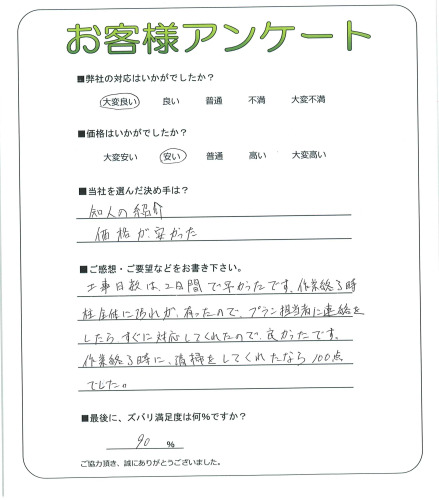 お客様アンケート
■弊社の対応はいかがでしたか?
大変良い 良い 普通 不満 大変不満
■価格はいかがでしたか?
大変安い 安い 普通 高い 大変高い
■当社を選んだ決め手は?
知人の紹介
価格が安かった
■ご感想・ご要望などをお書き下さい。
工事日数は、2日間で早かったです。作業終了時
柱全体に汚れが、有ったので、プラン担当者に連絡を
したらすぐに対応してくれたので、良かったです。
作業終了時に、清掃をしてくれたなら100点
でした。
■最後に、ズバリ満足度は何%ですか?
90 %
ご協力頂き、誠にありがとうございました。